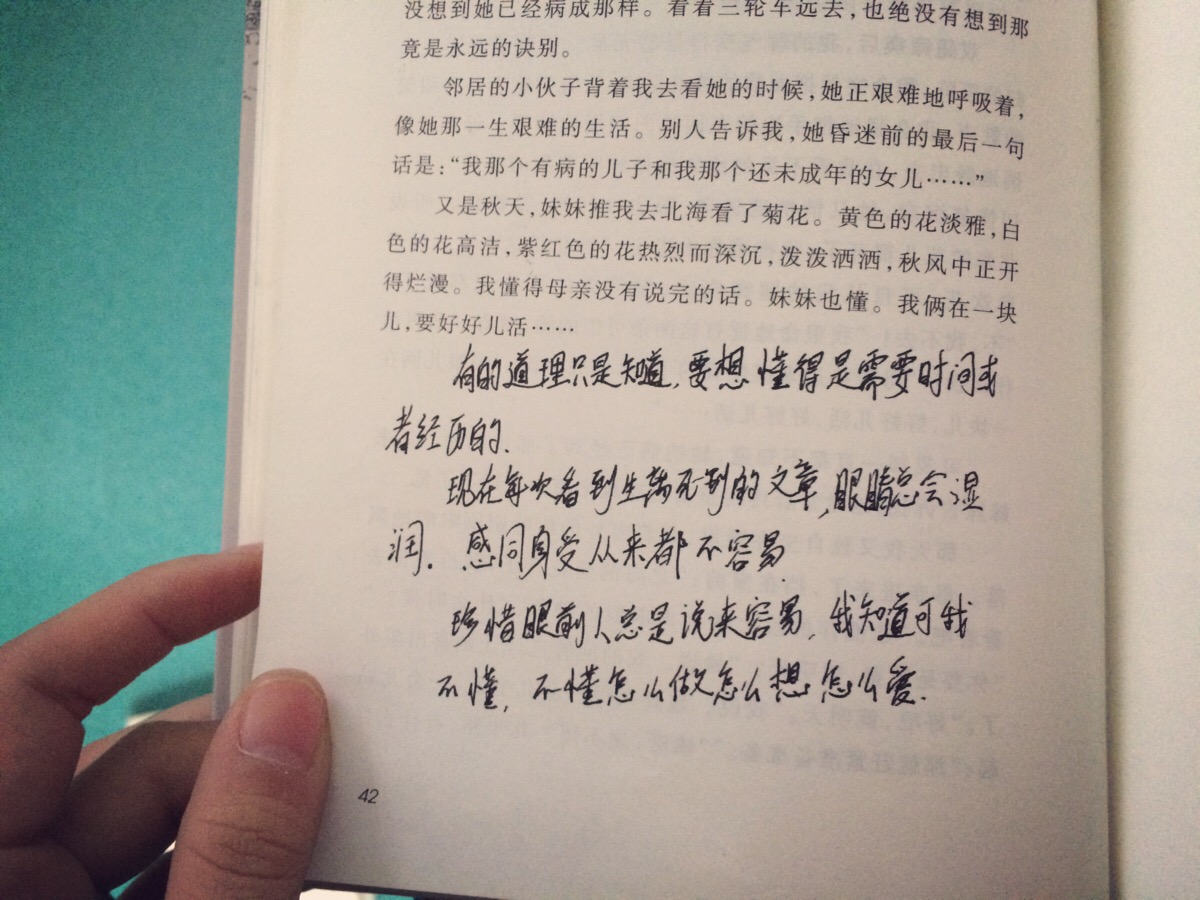 没想到她已经病成那样。看看三轮车远去,也绝没有想到那
竟是永远的诀别。
邻居的小伙子背着我去看她的时候,她正艰难地呼吸着,
像她那一生艰难的生活。别人告诉我,她昏迷前的最后一句
话是:“我那个有病的儿子和我那个还未成年的女儿……”
又是秋天,妹妹推我去北海看了菊花。黄色的花淡雅,白
色的花高洁,紫红色的花热烈而深沉,泼泼洒洒,秋风中正开
得烂漫。我懂得母亲没有说完的话。妹妹也懂。我俩在一块
儿,要好好儿活……
有的道理只是知道,要想懂得是需要时间或
者经历的.
现在每次看到生离死别的文章,眼睛总会湿
润. 感同身受从来都不容易.
珍惜眼前人总是说来容易,我知道可我
不懂,不懂怎么做怎么想怎么爱.
42